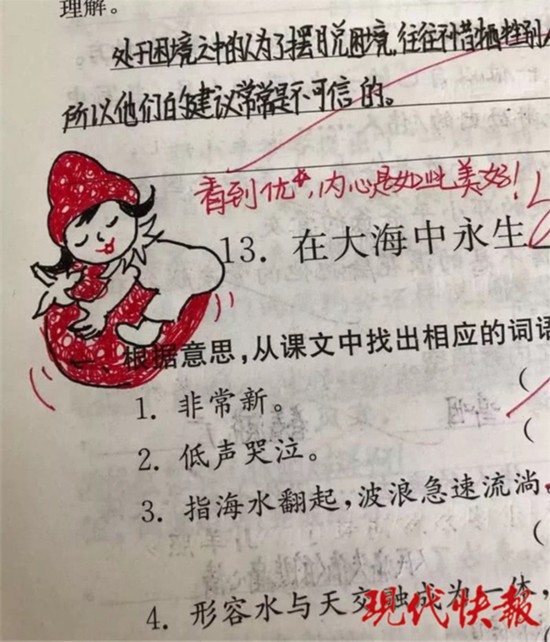 理解。
处于困境之中的人为了摆脱困境,往往不惜牺牲别人
所以他们的建议常常是不可信的。
看到优☆,内心是如此美好!
13. 在大海中永生
一、根据意思,从课文中找出相应的词语
1. 非常新。 (
2. 低声哭泣。 (
3. 指海水翻起,波浪急速流淌,
(
4. 形容水与天交融成为一体,
现代快報